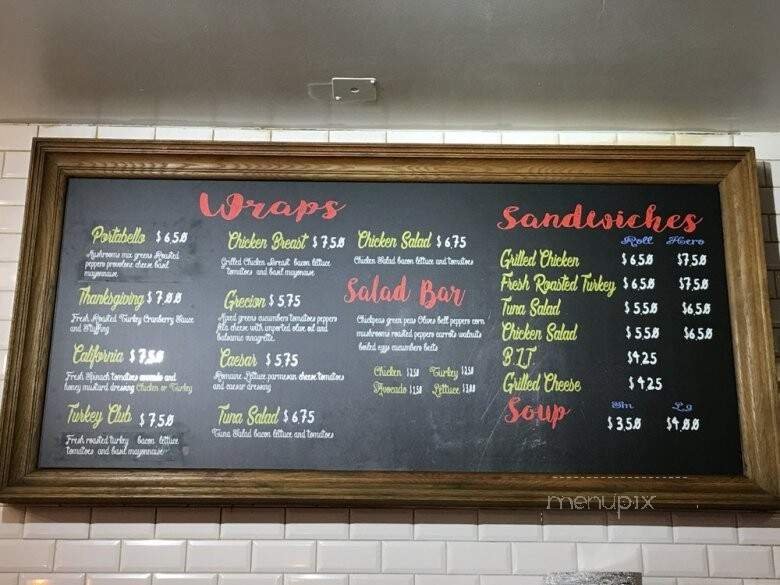 Wraps
Portabello $ 6.50
Mushrooms mix greens Roasted
peppers provolone cheese basil
mayonnaise
Thanksgiving $ 7.00
Fresh Roasted Turkey Cranberry Sauce
and Stuffing
California $ 7.50
Fresh Spinach tomatoes avocado and
honey mustard dressing Chicken or Turkey
Turkey Club $ 7.50
Fresh roasted turkey bacon lettuce
tomatoes and basil mayonnaise
Chicken Breast $ 7.50
Grilled Chicken Breast bacon lettuce
tomatoes and basil mayonnaise
Grecian $ 5.75
Mixed greens cucumbers tomatoes peppers
feta cheese with imported olive oil and
balsamic vinagrette
Caesar $ 5.75
Romaine Lettuce parmesan cheese tomatoes
and caesar dressing
Tuna Salad $ 6.75
Tuna Salad bacon lettuce and tomatoes
Chicken Salad $ 6.75
Chicken Salad bacon lettuce and tomatoes
Salad Bar
Chickpeas green peas Olives bell peppers corn
mushrooms roasted peppers carrots walnuts
boiled eggs cucumbers beets
Chicken $2.50 Turkey $2.50
Avocado $1.50 Lettuce $3.00
Sandwiches
Roll Hero
Grilled Chicken $ 6.50 $7.50
Fresh Roasted Turkey $ 6.50 $7.50
Tuna Salad $ 5.50 $6.50
Chicken Salad $ 5.50 $6.50
B.L.T $4.25
Grilled Cheese $4.25
Soup Sm Lg
$ 3.50 $4.00
menupix